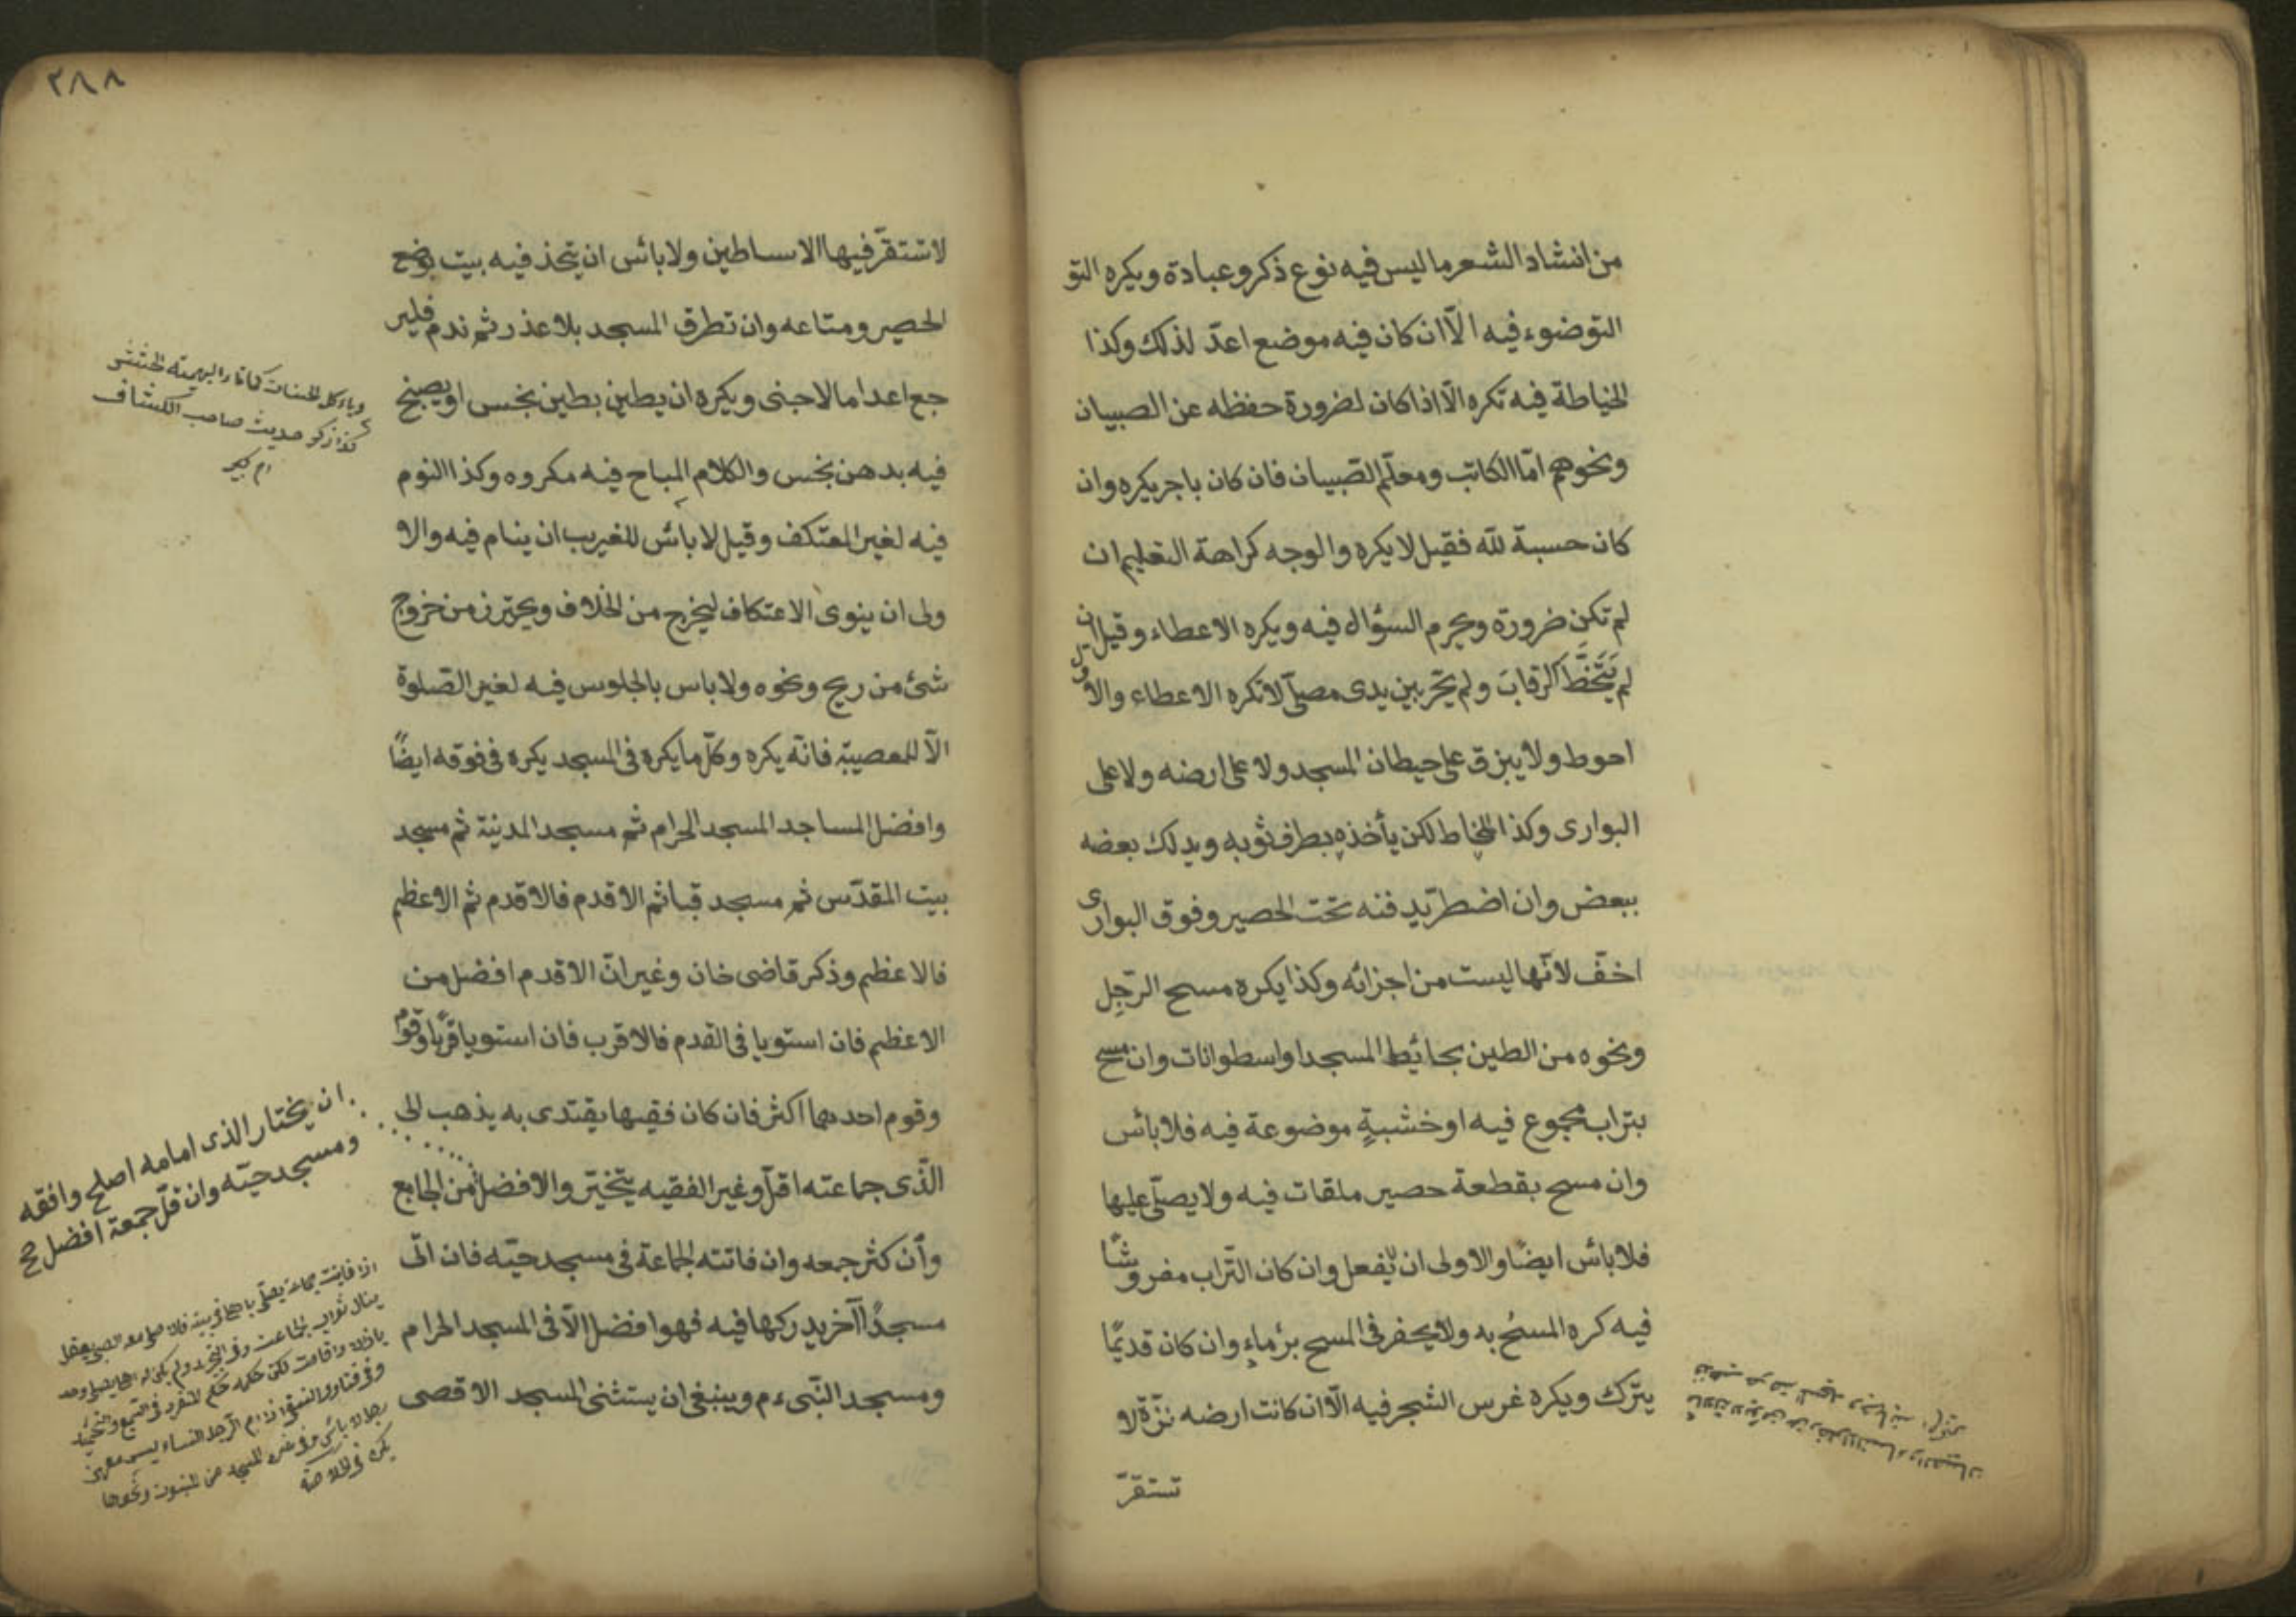 من انشاد الشعر ما ليس فيه نوع ذكر وعبادة ويكره التو
التوضوء فيه الّا ان كان فيه موضع اعدّ لذلك وكذا
الخياطة فيه تكره الّا اذا كان لضرورة حفظه عن الصبيان
ونحوهم امّا الكاتب ومعلّم الصّبيان فان كان باجر يكره وان
كان حسبة للّه فقيل لا يكره والوجه كراهة التعليم ان
لم تكن ضرورة ويحرم السؤال فيه ويكره الاعطاء وقيل ان
لم يَتَخَطَّ الرقابَ ولم يمرّ بين يدى مصلّ لا تكره الاعطاء والاول
احوط ولا يبزق على حيطان المسجد ولا على ارضه ولا على
البوارى وكذا المخاط لكن يأخذه بطرف ثوبه ويدلك بعضه
ببعض وان اضطرّ يدفنه تحت الحصير وفوق البوارى
اخفّ لانّها ليست من اجزائه وكذا يكره مسح الرّجِل
ونحوه من الطين بحائيط المسجد او اسطوانات وان مسح
بتراب مجموع فيه او خشبةٍ موضوعة فيه فلا بائس
وان مسح بقطعة حصير ملقات فيه ولا يصلّى عليها
فلا بائس ايضًا والاولى ان لا يفعل وان كان التّراب مفروشًا
فيه كره المسحُ به ولا يحفر فى المسح بئر ماءٍ وان كان قديمًا
يترك ويكره غرس الشجر فيه الّا ان كانت ارضه نزّة لا
تستقرّ
٢٨٨
لا تستقرّ فيها الاساطين ولا بائس ان يتخذ فيه بيت يوضع
الحصير ومتاعه وان تطرق المسجد بلا عذر ثم ندم فلير
جع اعداما لاجنى ويكره ان يطين بطين نجس او يصبح
فيه بدهن نجس والكلام المباح فيه مكروه وكذا النوم
فيه لغير المعتكف وقيل لا بائس للغريب ان ينام فيه والا
ولى ان ينوى الاعتكاف ليخرج من الخلاف ويحترز من خروج
شئ من ريح ونحوه ولا باس بالجلوس فيه لغير الصّلوة
الّا للمعصية فانّه يكره وكلّ ما يكره فى المسجد يكره فى فوقه ايضًا
وافضل المساجد المسجد الحرام ثم مسجد المدينة ثم مسجد
بيت المقدّس ثم مسجد قبا ثم الاقدم فالاقدم ثم الاعظم
فالاعظم وذكر قاضى خان وغير انّ الاقدم افضل من
الاعظم فان استويا فى القدم فالاقرب فان استويا قربًا وقوم
وقوم احديهما اكثر فان كان فقيها يقتدى به يذهب الى
الّذى جماعته اقلّ وغير الفقيه يتخيّر والافضل من الجامع
وأن كثر جمعه وان فاتته الجماعة فى مسجد حيّه فان اتى
مسجدًا آخر يدركها فيه فهو افضل الّا فى المسجد الحرام
ومسجد النّبى ءم وينبغى ان يستثنى المسجد الاقصى
كذا ذكر حديث صاحب الكشاف
ان يختار الذى امامه اصلح وافقه
ومسجد حيّه وان قلّ جمعة افضل